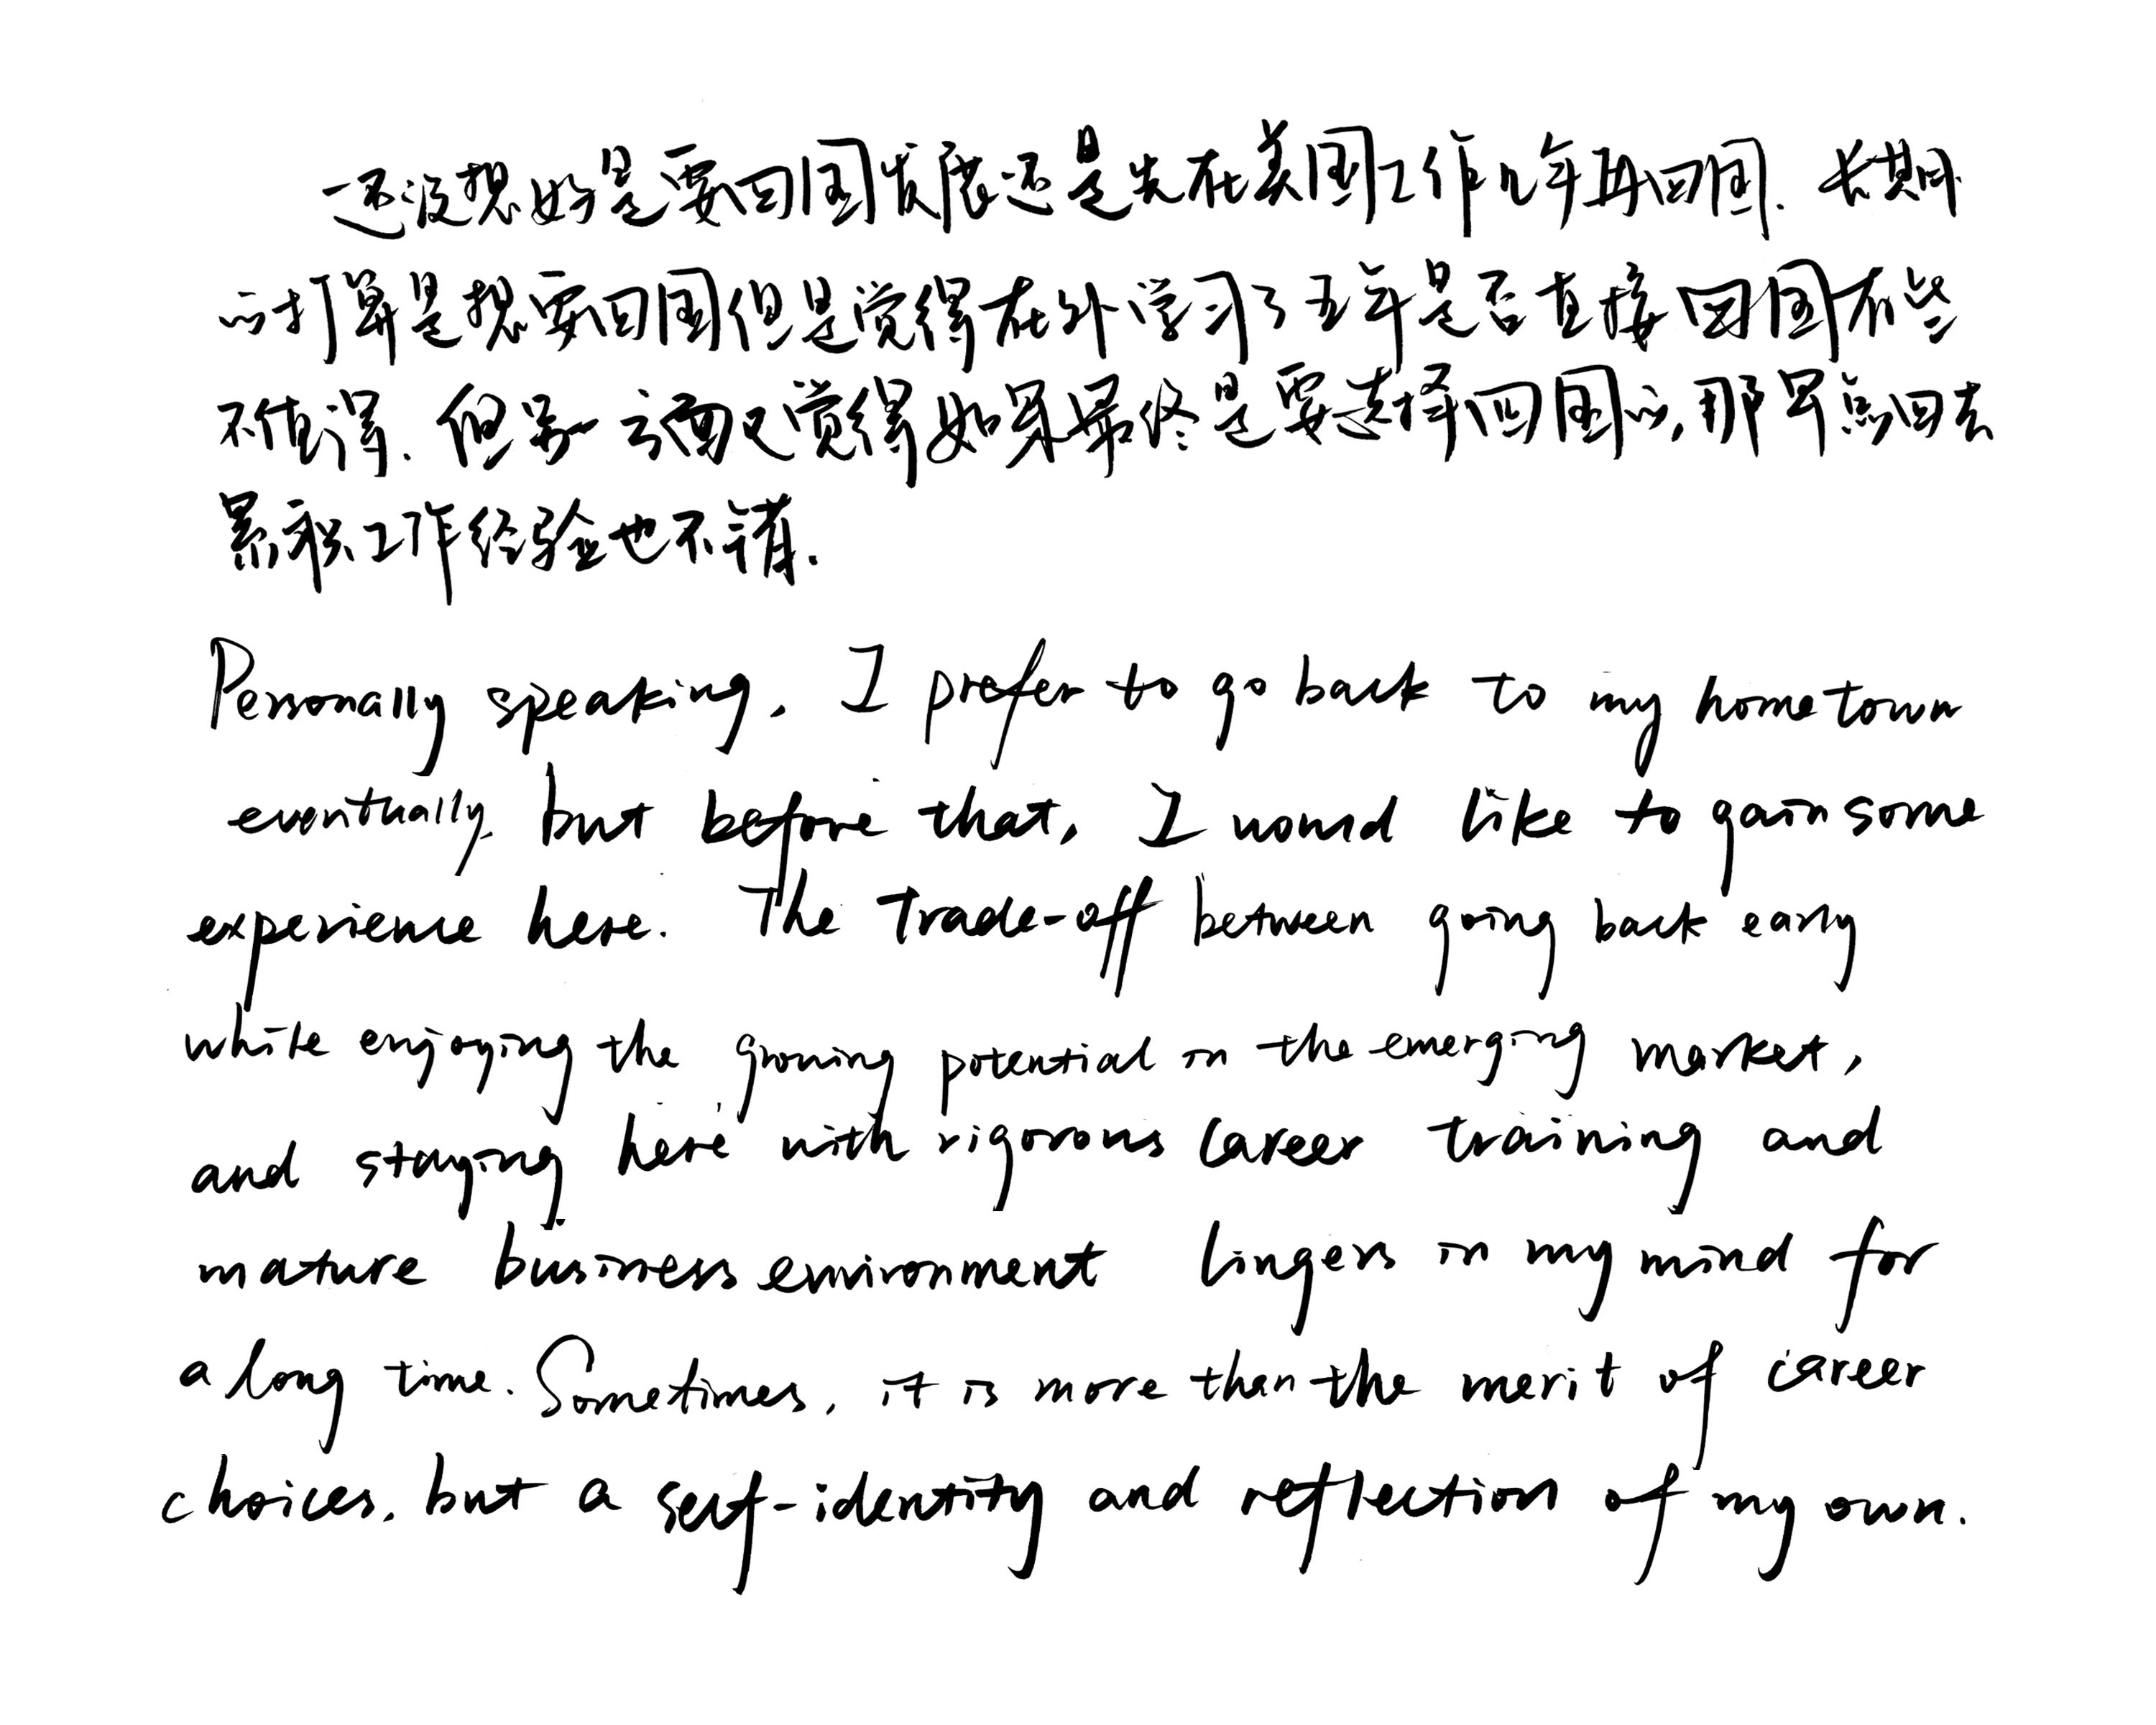 还没想好是要回国发展还是先在美国工作几年再回国. 长期
的打算是想要回国但是觉得在外学习了五年是否直接回国有些
不值得. 但另一方面又觉得如果最终是要选择回国的, 那早点回去
累积工作经验也不错.
Personally speaking, I prefer to go back to my hometown
eventually, but before that, I would like to gain some
experience here. The trade-off between going back early
while enjoying the growing potential in the emerging market,
and staying here with rigorous career training and
mature business environment lingers in my mind for
a long time. Sometimes, it is more than the merit of career
choices, but a self-identity and reflection of my own.